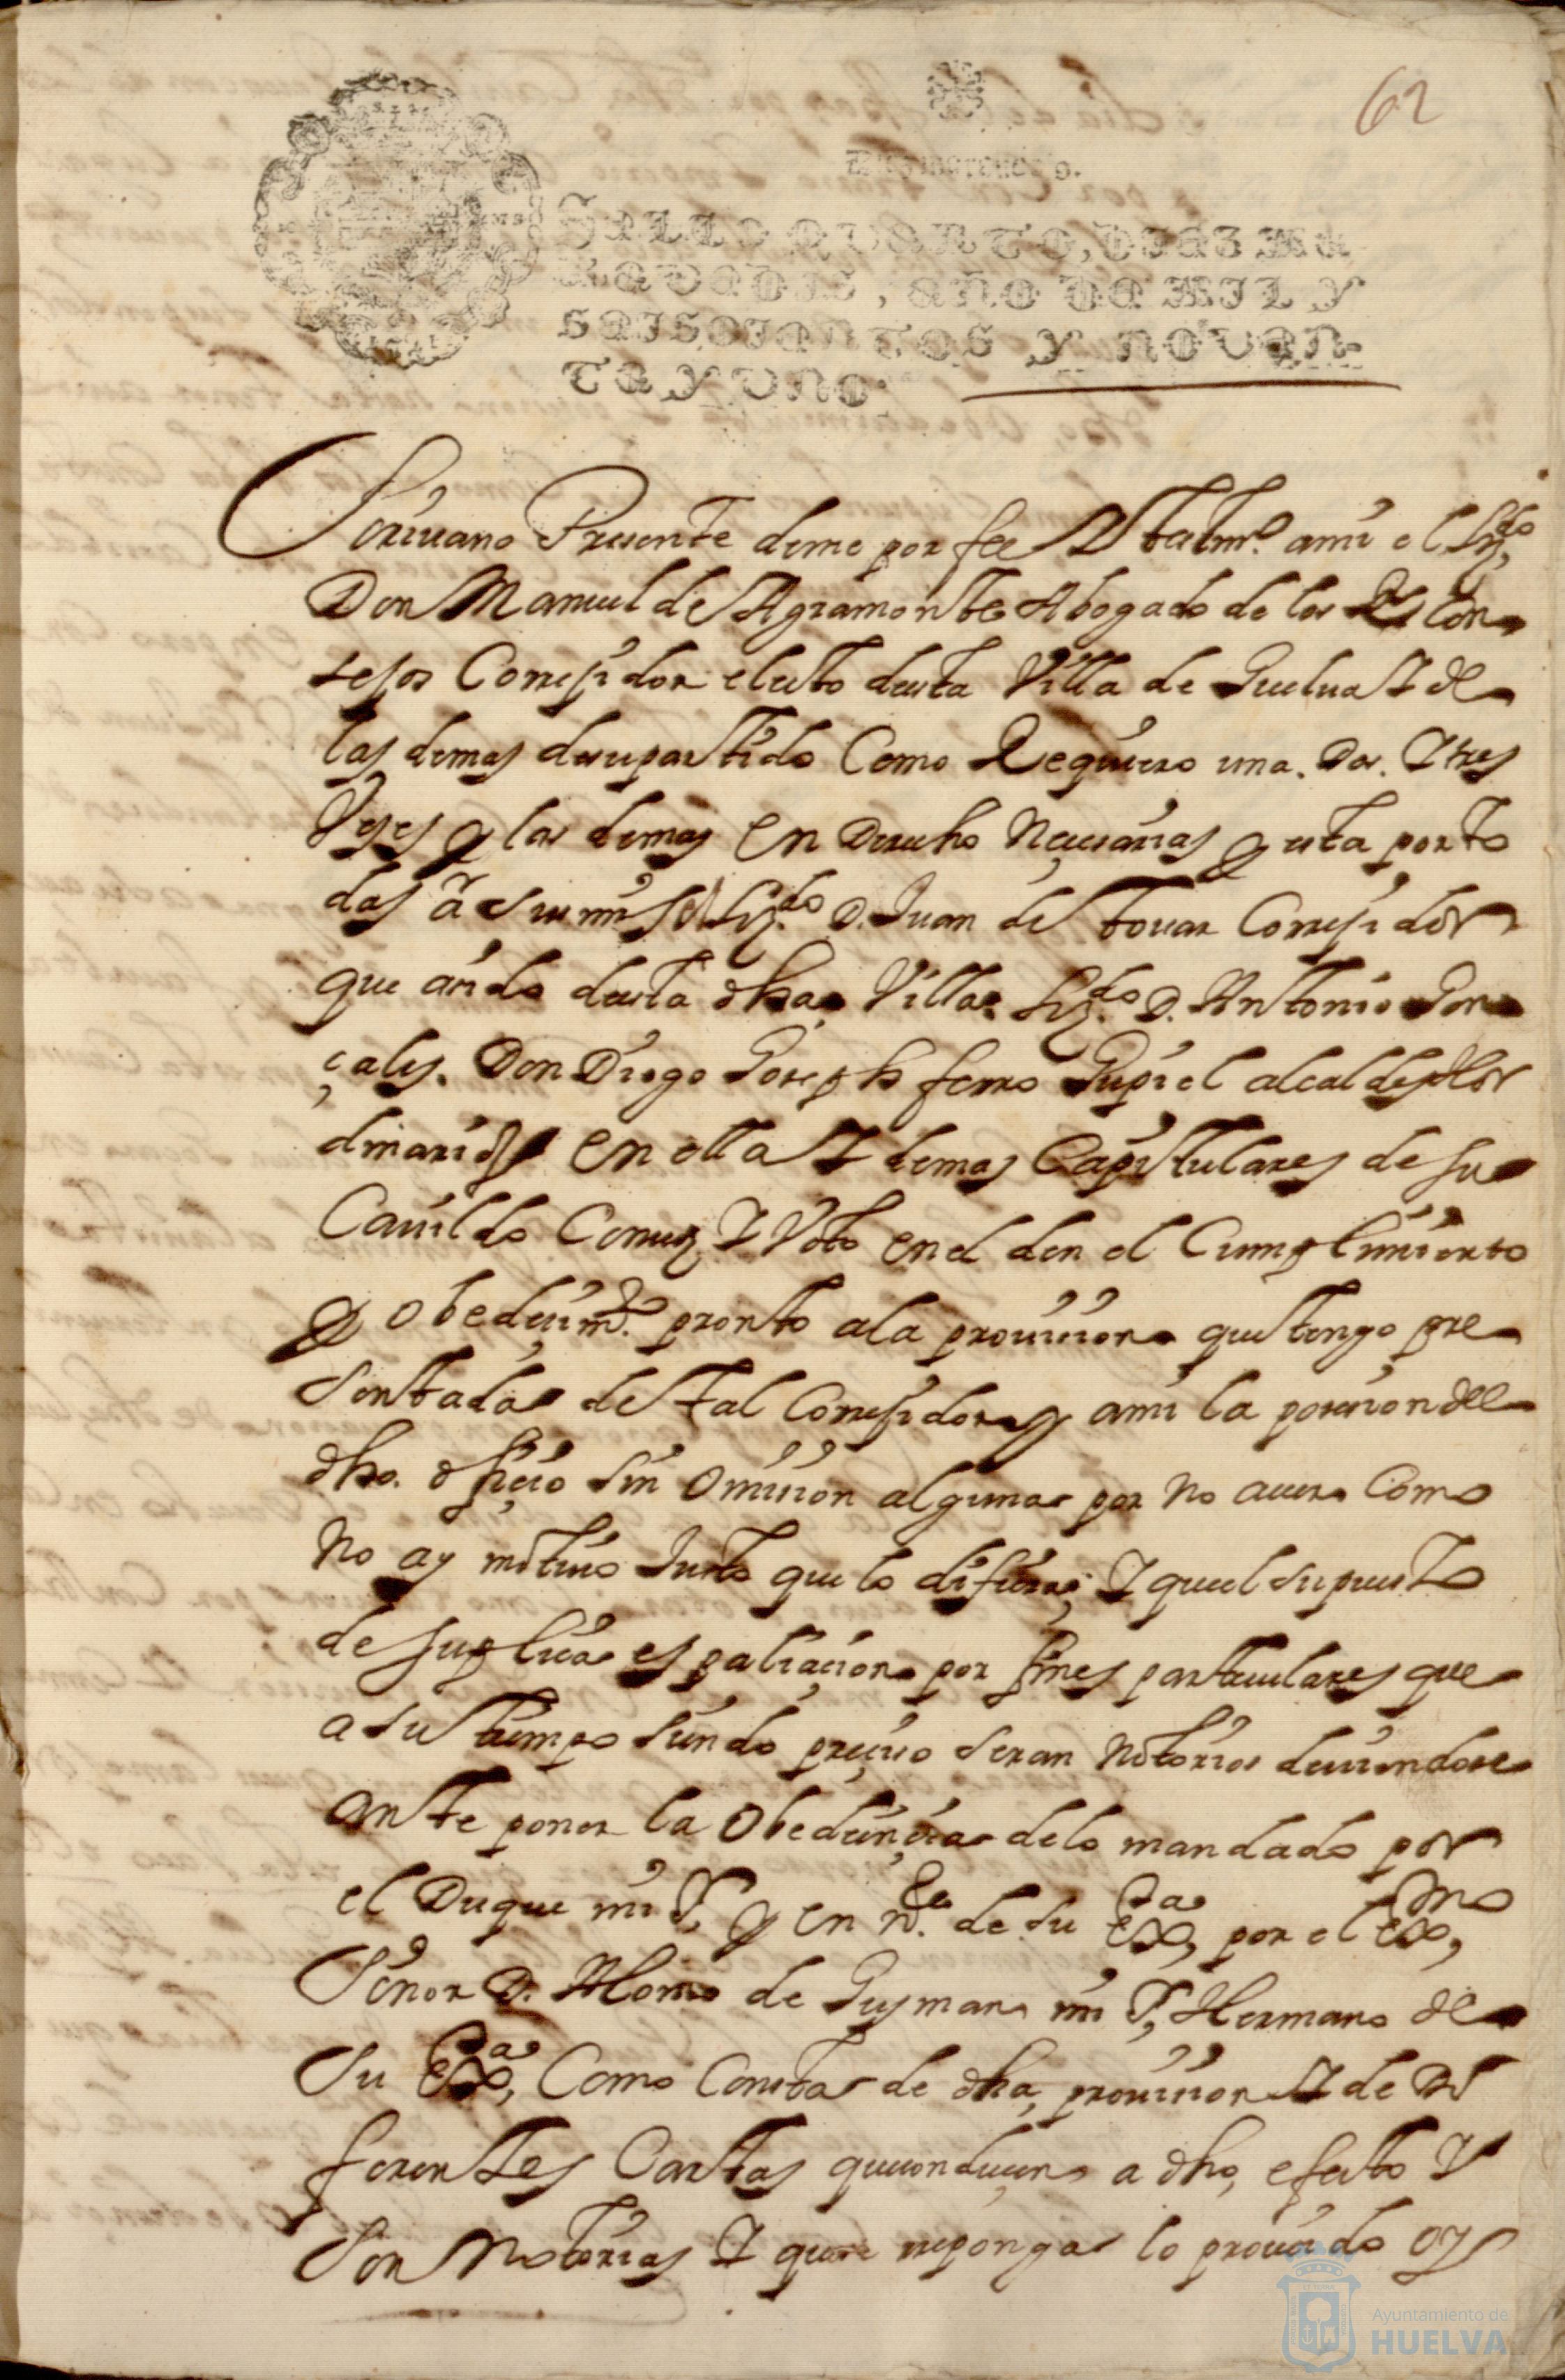 62
Diez maravedis.
SELLO QVARTO, DIEZ MA
RAVEDIS, AÑO DE MIL Y
SEISCIENTOS Y NOVEN-
TA Y VNO.
Scriuano Presente deme por fee Y testim.º ami el Liz.do
Don Manuel de Agramonte Abogado de los Rs Con
sejos Correjidor electo desta Villa de Guelua Y de
las demas de su partido Como Requiero una. Dos. Y tres
Veses y las demas en Derecho Neçesarias y esta por to
das a el Liz.do D. Juan de touar Correjidor
que a sido desta dha Villa. Liz.do D. Antonio Gon
çales. Don Diego Joseph ferro Gupiel alcaldes Hor
dinarios en ella Y demas Capitulares de su
Cauildo Con uoz Y Voto en el den el Cumplimiento
y obedeçim.to pronto a la prouision que tengo pre
sentada de tal Correjidor y ami la posesion del
dho. ofiçio sin omision alguna por no auer Como
No ay motiuo Justo que lo difiera, Y que el supuesto
de suplica es paliaçion por fines particulares que
a su tiempo siendo preçiso seran Notorios deuiendose
ante poner la obediençia de lo mandado por
el Duque mi S.r y en n.e de su Ex.a, por el Ex.mo,
Señor D. Alonso de Gusman mi S.r, Hermano de
su Ex.a, Como Consta de dha, prouision Y de di
ferentes Cartas que conduçen a dho, efecto Y
son Notorias Y que se reponga lo proueido oy
Ayuntamiento de
HUELVA